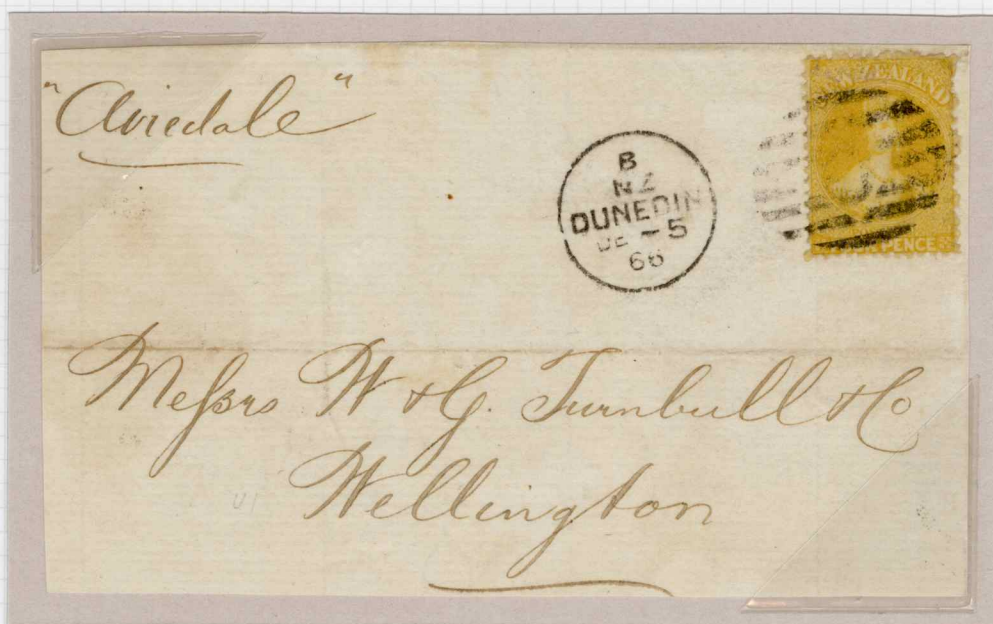 "Airedale"
B
NZ
DUNEDIN
DE - 5
66
NEW ZEALAND
FOUR PENCE
Messrs W & G. Turnbull & Co
Wellington